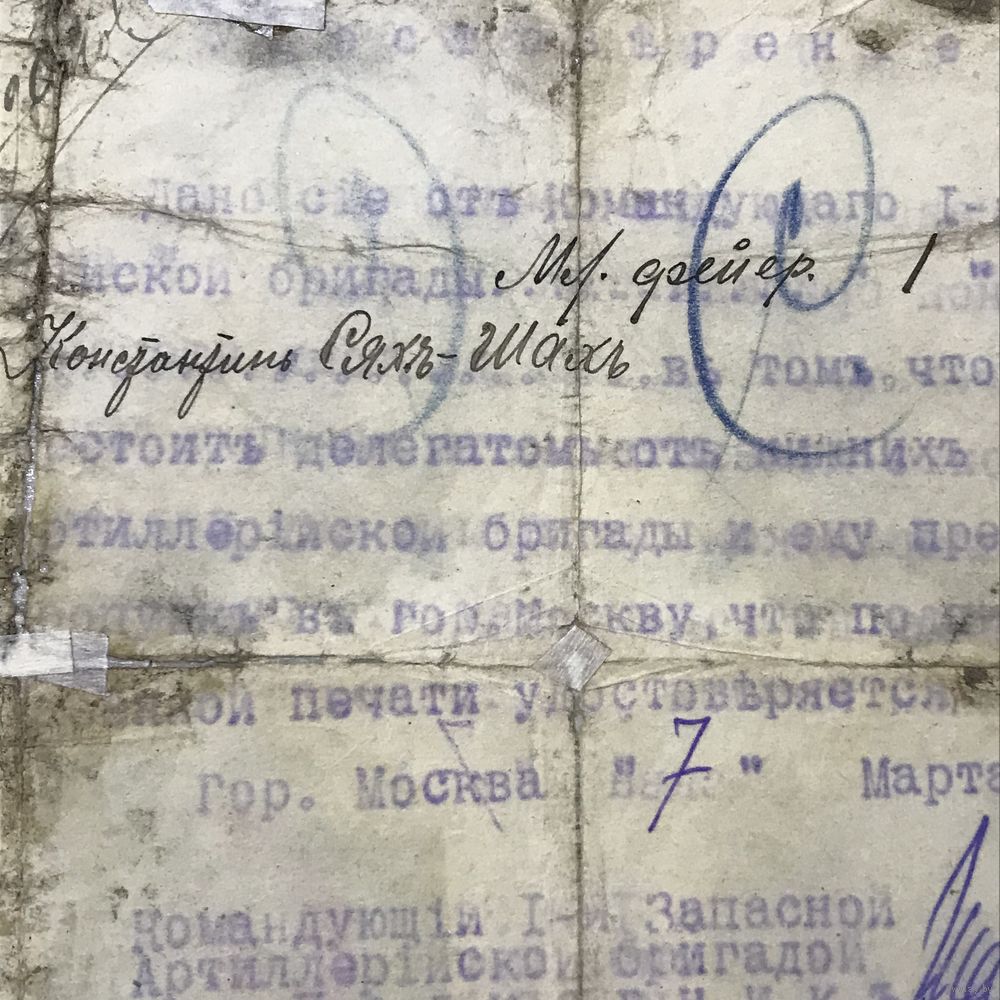 Дано сіе отъ Командующаго I-
бригады Мл. фейер. 1
Константинъ Сяхъ-Шахъ въ томъ, что
стоитъ делегатомъ отъ нижнихъ
ртиллерійской бригады и ему пре
въ гор. Москву, что
печати удостовѣряется
Гор. Москва " 7 " Марта
Командующій I-й Запасной
Артиллерійской бригадой